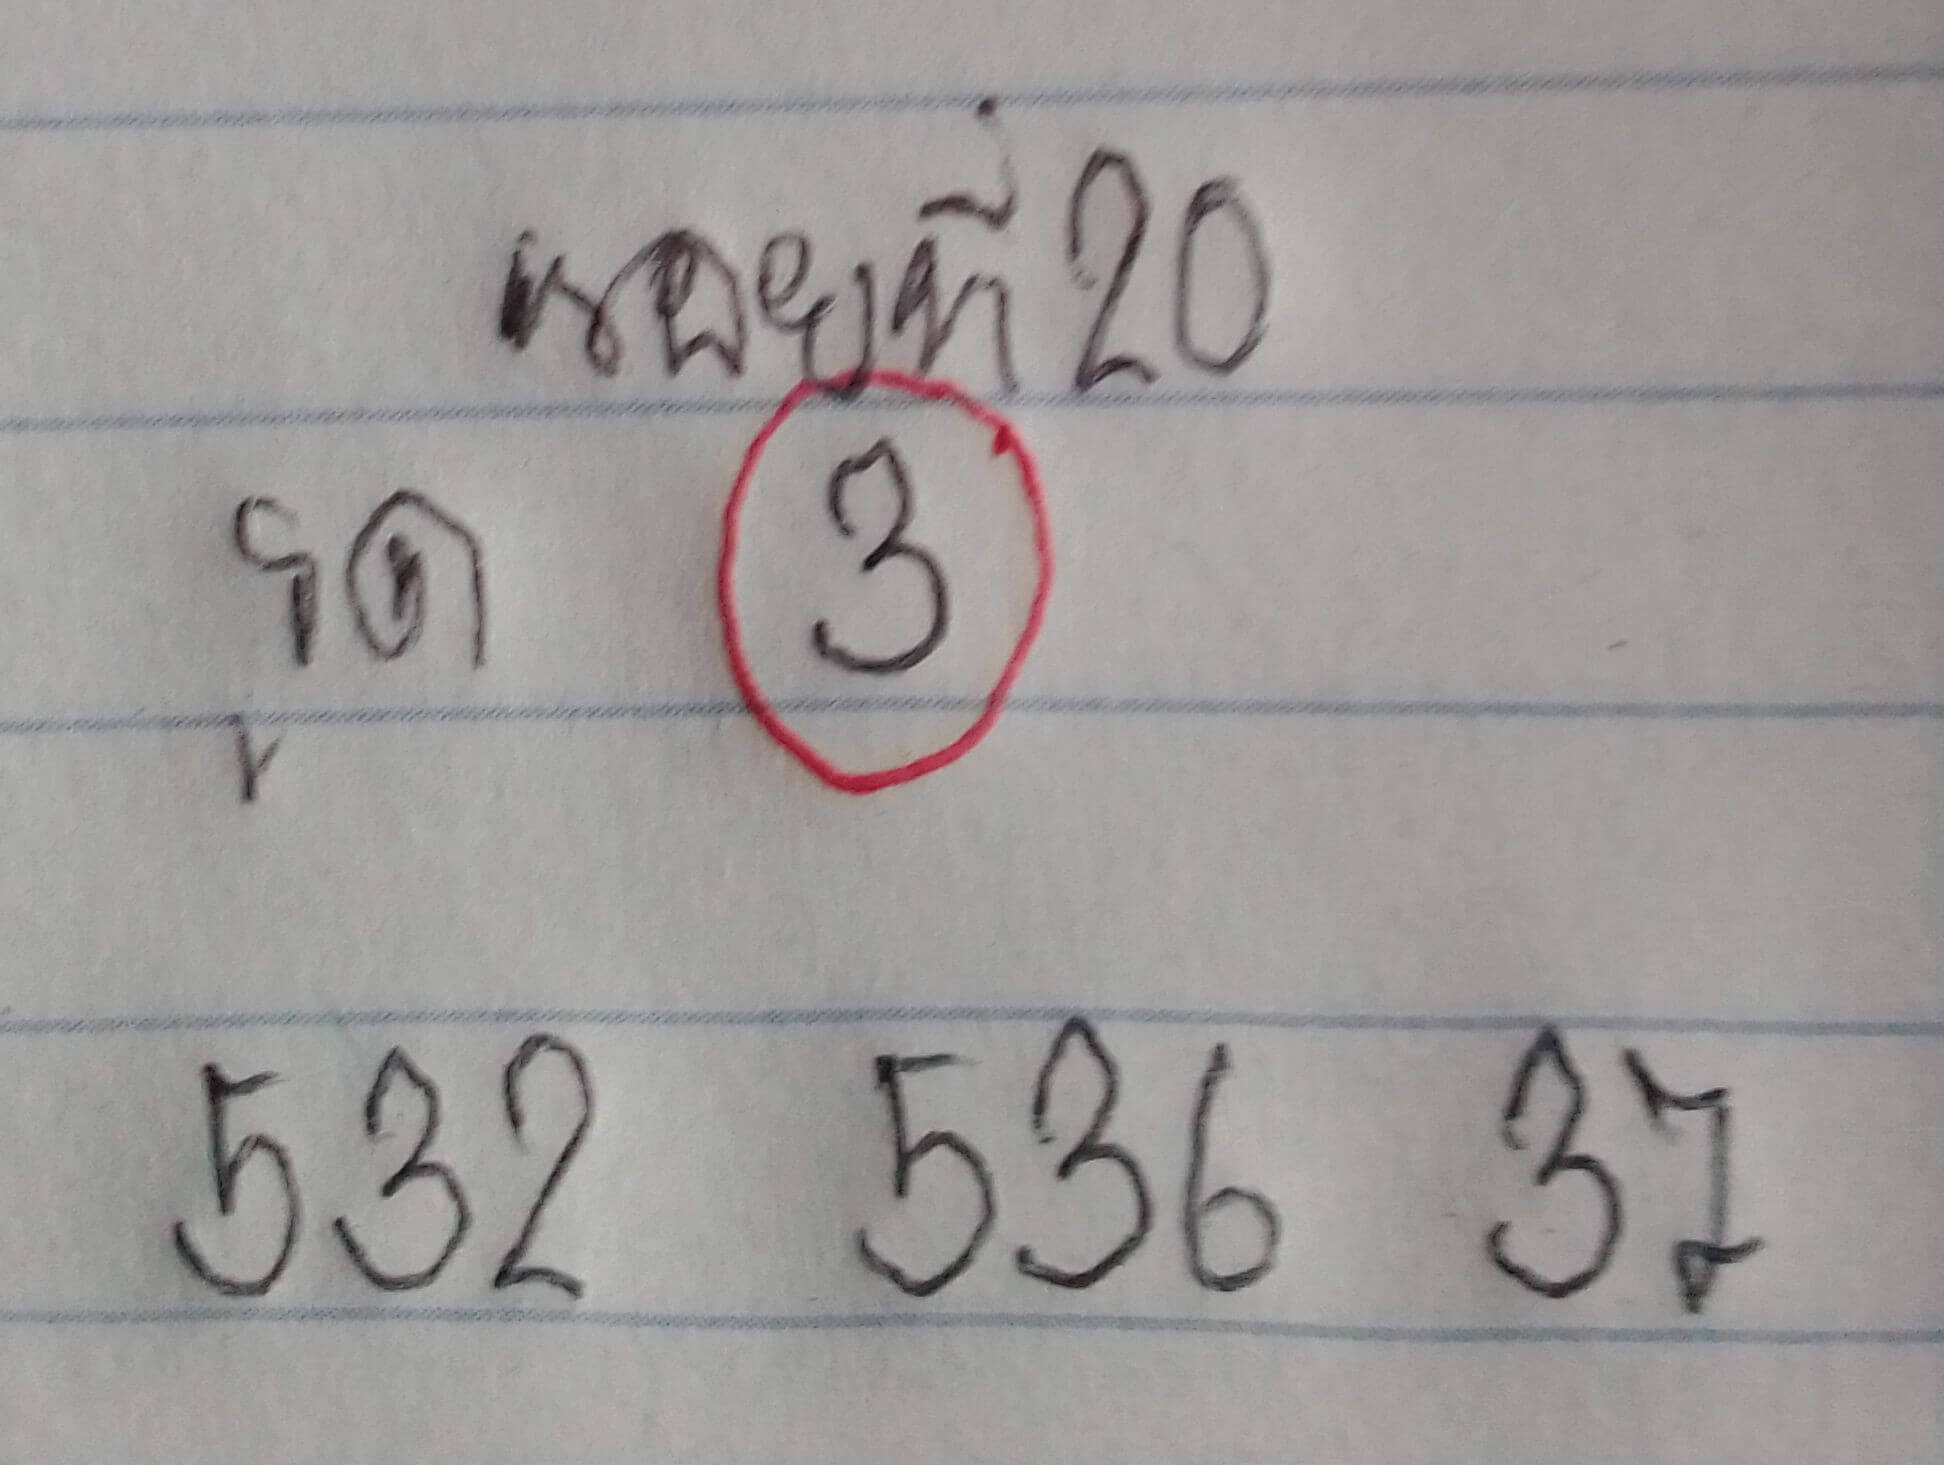 หอยที่ 20
รูด 3
532 536 37